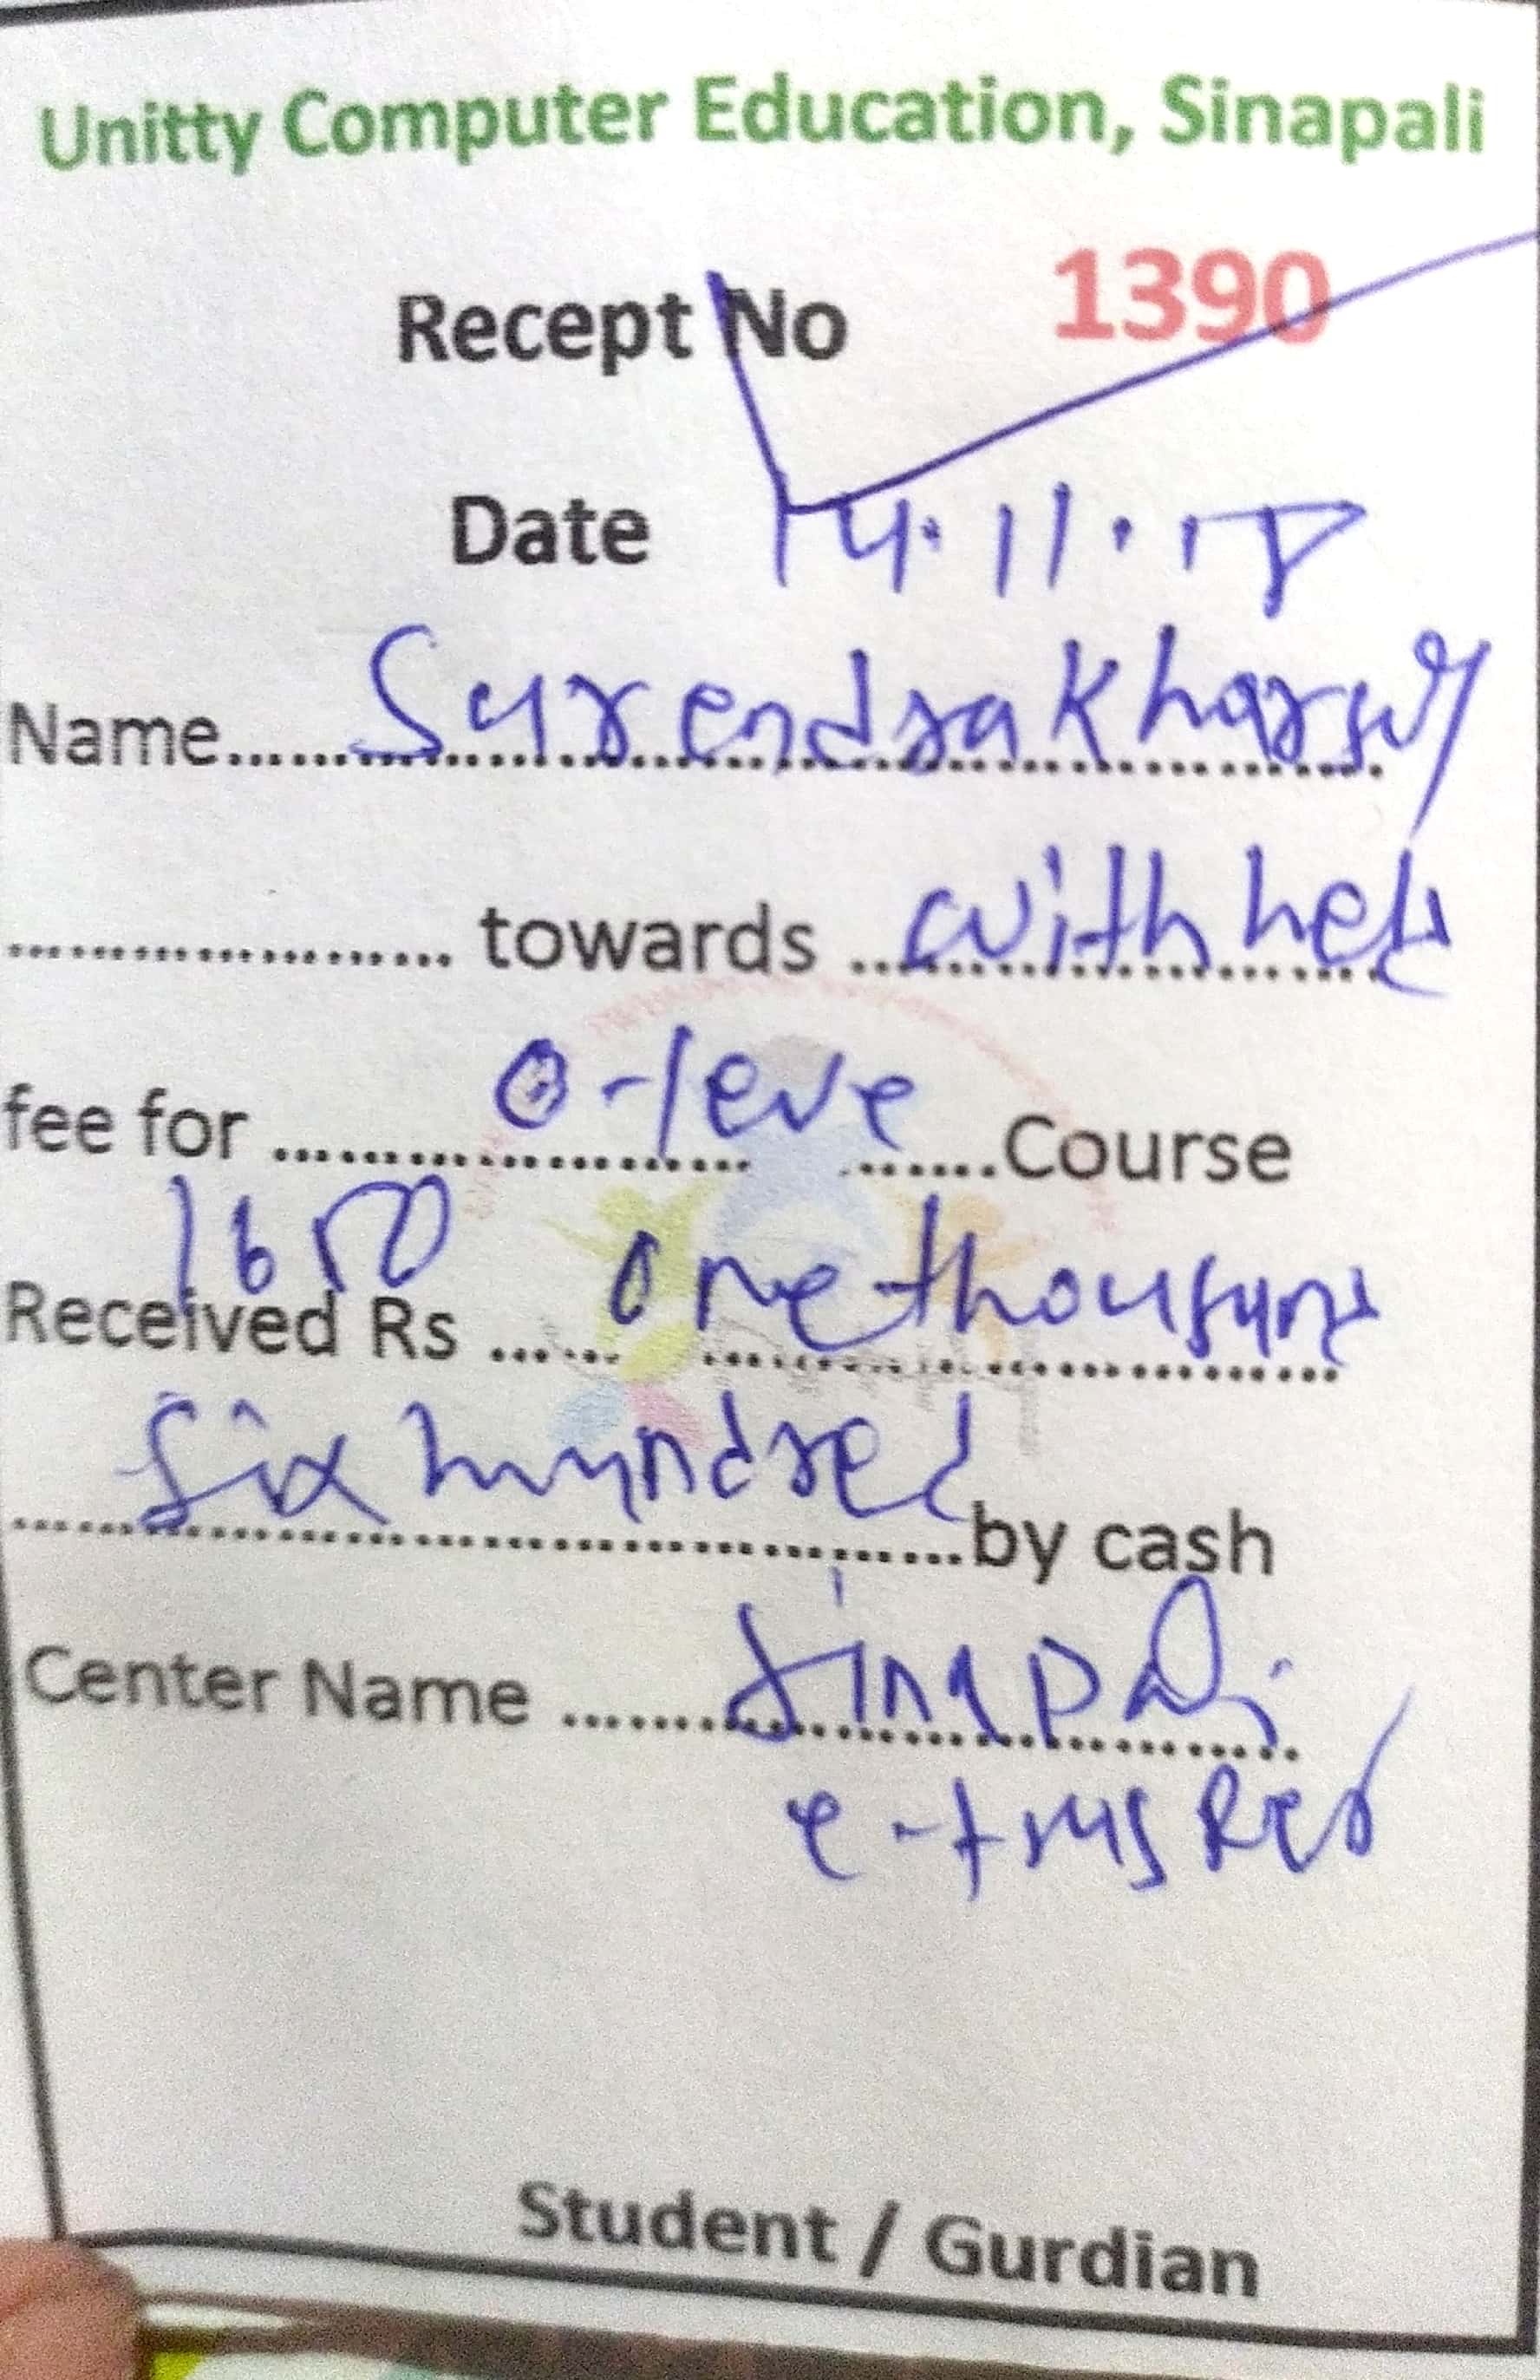 Unitty Computer Education, Sinapali
Recept No 1390
Date 14.11.18
Name...... Surendra Kharsel
.................... towards ... with held
fee for ............ O-leve .......Course
1650
Received Rs ...... one thousand
six hundred ......by cash
Center Name ...... Sinapali
Student / Gurdian